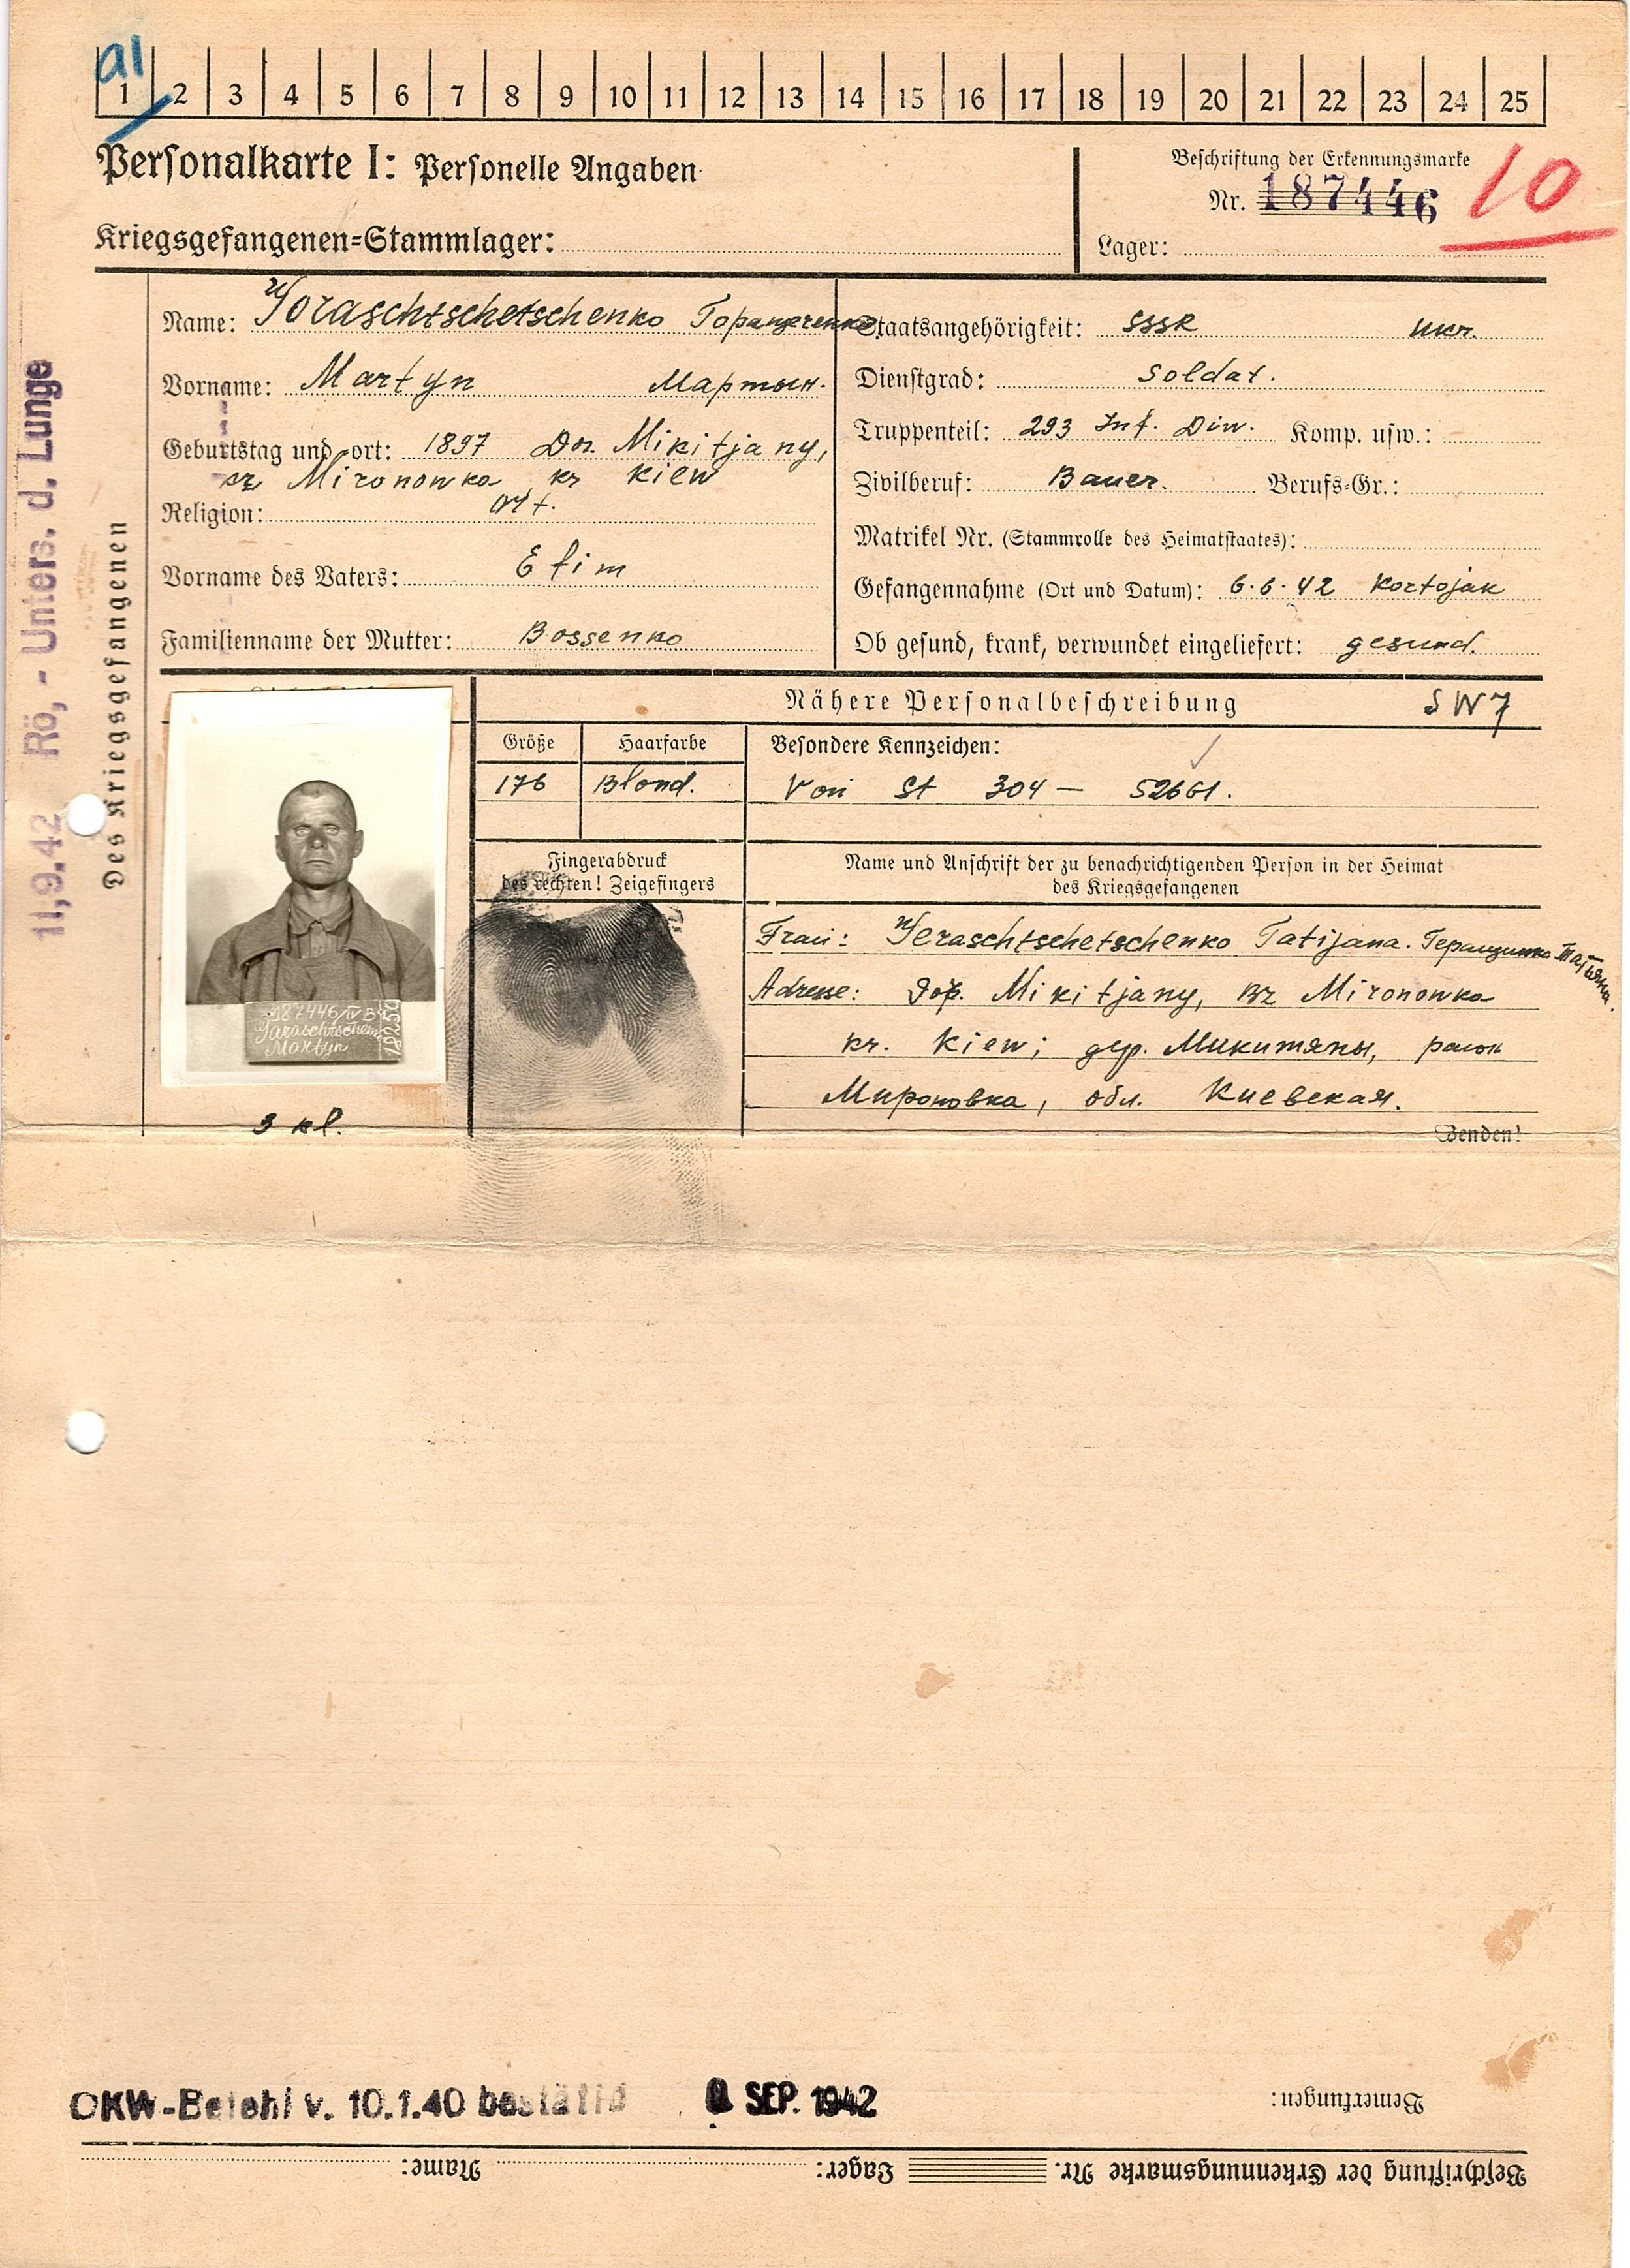 a1
1 2 3 4 5 6 7 8 9 10 11 12 13 14 15 16 17 18 19 20 21 22 23 24 25
Personalkarte I: Personelle Angaben
Beschriftung der Erkennungsmarke
Nr. 187446
10
Kriegsgefangenen=Stammlager:
Lager:
Des Kriegsgefangenen
11,9.42 Rö,- Unters. d. Lunge
Name: Goraschtschetschenko
Vorname: Martyn Мартын.
Geburtstag und =ort: 1897 Mikitjany,
Mironowka kr Kiew
Religion: Ort.
Vorname des Vaters: Efim
Familienname der Mutter: Bossenko
Staatsangehörigkeit: SSSR Ukr.
Dienstgrad: Soldat.
Truppenteil: 293 Inf. Diw. Komp. usw.:
Zivilberuf: Bauer. Berufs=Gr.:
Matrikel Nr. (Stammrolle des Heimatstaates):
Gefangennahme (Ort und Datum): 6.6.42 Kortojak
Ob gesund, krank, verwundet eingeliefert: gesund.
Nähere Personalbeschreibung SW7
Größe Haarfarbe Besondere Kennzeichen:
176 Blond. Von St 304 — 52661.
187446/IV B
Garaschtschenk
Martyn
3 kl.
Fingerabdruck
des rechten! Zeigefingers
Name und Anschrift der zu benachrichtigenden Person in der Heimat
des Kriegsgefangenen
Frau: Geraschtschetschenko Tatijana.
Adresse: Mikitjany, Bz Mironowka
kr. Kiew; дер. Микитяны, раион
Мироновка, обл. Киевская.
Wenden!
OKW-Befehl v. 10.1.40 bestätig SEP. 1942
Bemerkungen:
Name: Lager: Beschriftung der Erkennungsmarke Nr.